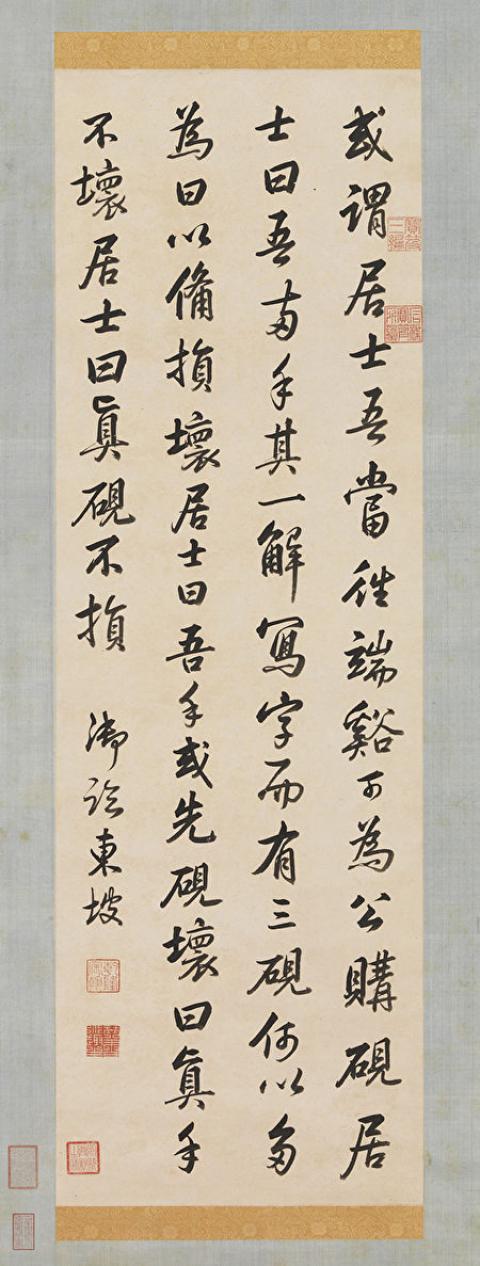 或謂居士吾當往端谿可為公購硯居
士曰吾兩手其一解寫字而有三硯何以多
為曰以備損壞居士曰吾手或先硯壞曰真手
不壞居士曰真硯不損
御臨東坡